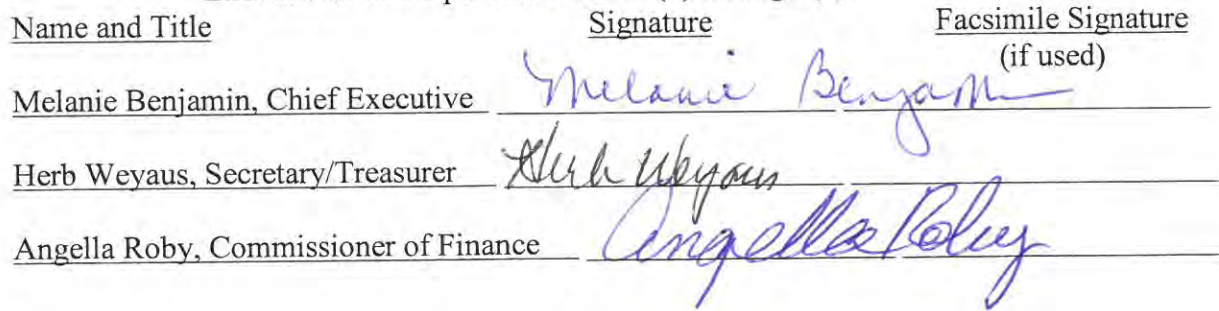 Name and Title Signature Facsimile Signature
(if used)
Melanie Benjamin, Chief Executive Melanie Benjamin
Herb Weyaus, Secretary/Treasurer Herb Weyaus
Angella Roby, Commissioner of Finance Angella Roby